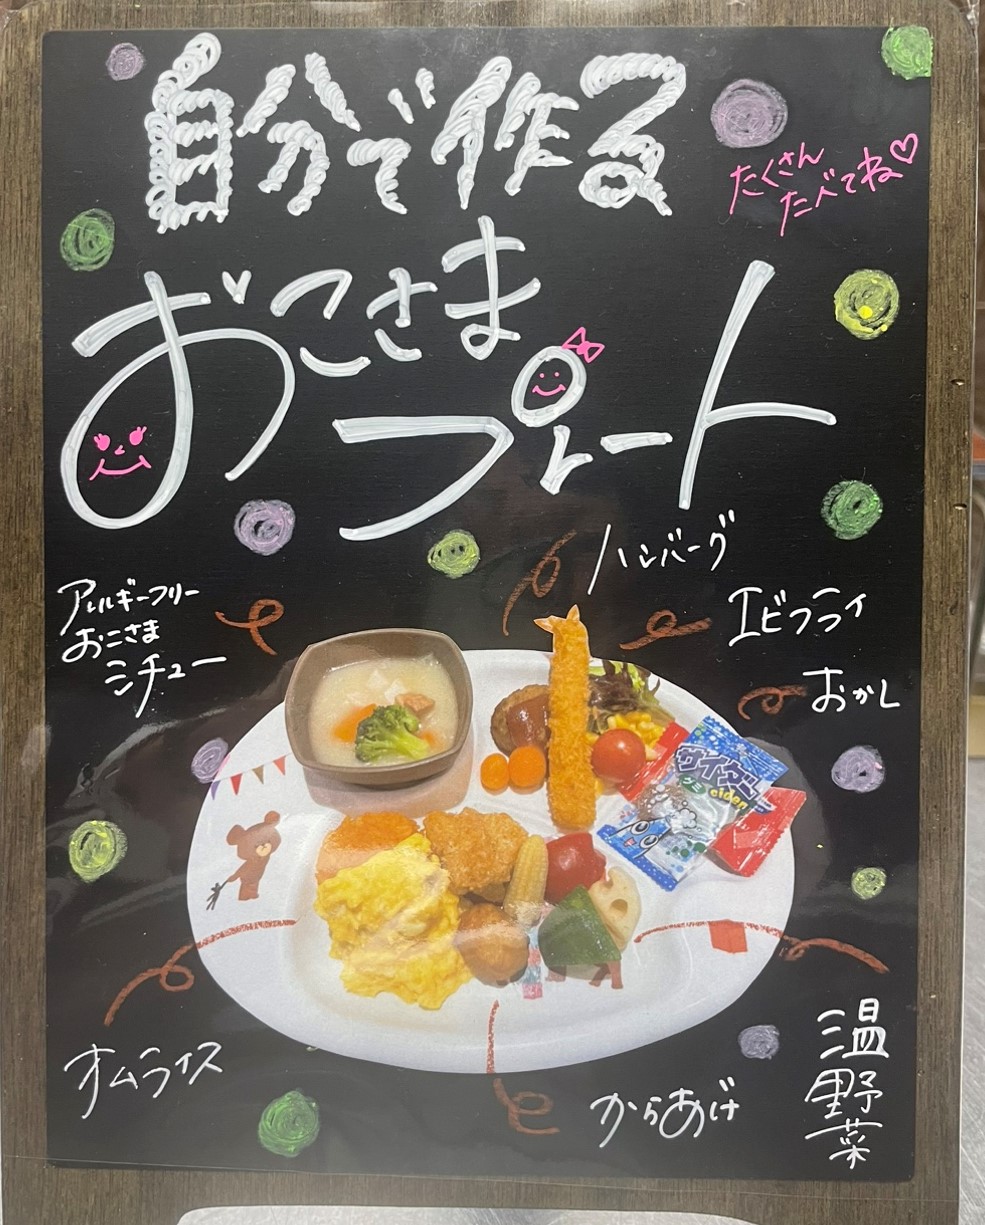 自分で作る
たくさん
たべてね♡
おこさま
プレート
ハンバーグ
アレルギーフリー
おこさま
シチュー
エビフライ
おかし
サイダー
グミ
cider
オムライス
からあげ
温野菜